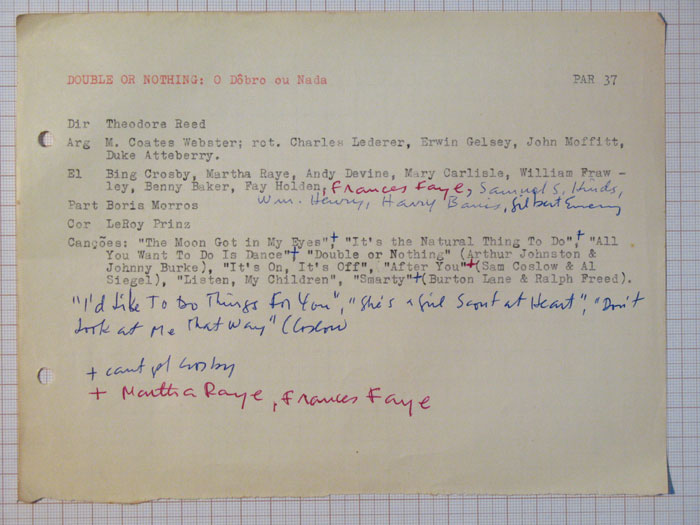 DOUBLE OR NOTHING: O Dôbro ou Nada PAR 37
Dir Theodore Reed
Arg M. Coates Webster; rot. Charles Lederer, Erwin Gelsey, John Moffitt,
Duke Atteberry.
El Bing Crosby, Martha Raye, Andy Devine, Mary Carlisle, William Fraw -
ley, Benny Baker, Fay Holden, Frances Faye, Samuel S. Hinds,
Wm. Henry, Harry Barris, Gilbert Emery
Part Boris Morros
Cor LeRoy Prinz
Canções: "The Moon Got in My Eyes"+, "It's the Natural Thing To Do",+ "All
You Want To Do Is Dance"+ "Double or Nothing" (Arthur Johnston &
Johnny Burke), "It's On, It's Off", "After You"+ (Sam Coslow & Al
Siegel), "Listen, My Children", "Smarty"+ (Burton Lane & Ralph Freed).
"I'd Like To Do Things For You", "She's a Girl Scout at Heart", "Don't
Look at Me That Way" (Coslow
+ cant pl Crosby
+ Martha Raye, Frances Faye